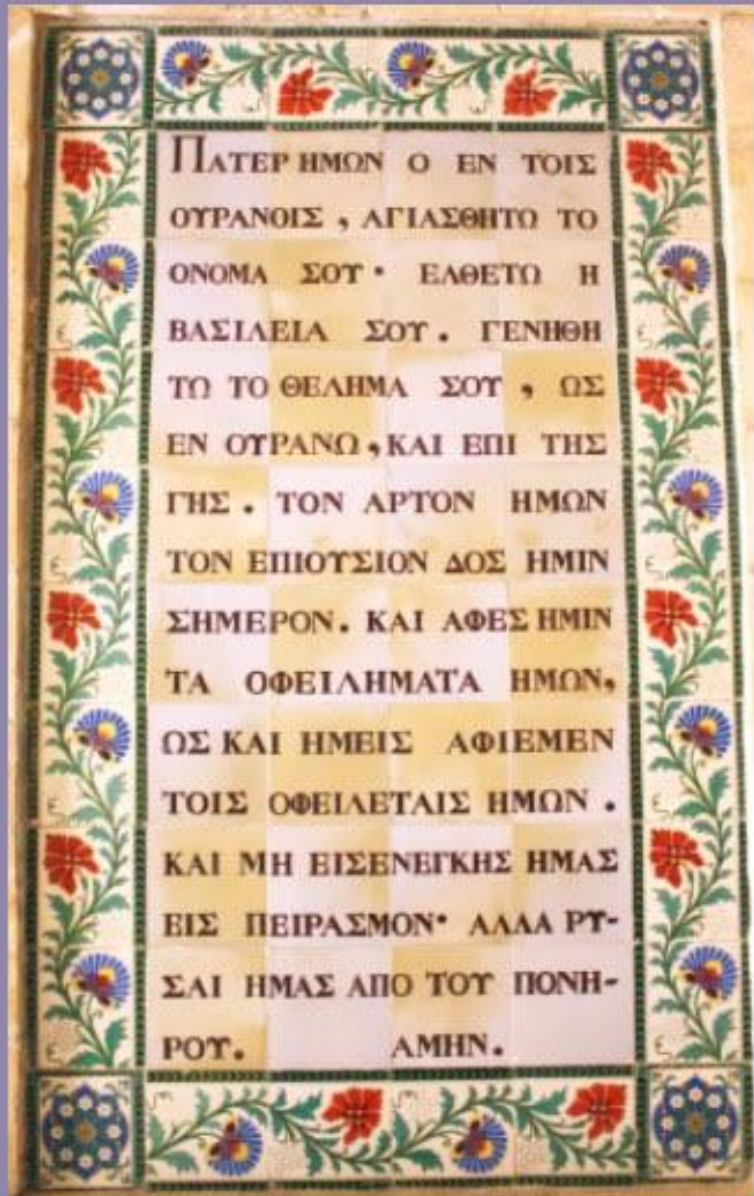 ΠΑΤΕΡ ΗΜΩΝ Ο ΕΝ ΤΟΙΣ
ΟΥΡΑΝΟΙΣ , ΑΓΙΑΣΘΗΤΩ ΤΟ
ΟΝΟΜΑ ΣΟΥ· ΕΛΘΕΤΩ Η
ΒΑΣΙΛΕΙΑ ΣΟΥ. ΓΕΝΗΘΗ
ΤΩ ΤΟ ΘΕΛΗΜΑ ΣΟΥ , ΩΣ
ΕΝ ΟΥΡΑΝΩ , ΚΑΙ ΕΠΙ ΤΗΣ
ΓΗΣ. ΤΟΝ ΑΡΤΟΝ ΗΜΩΝ
ΤΟΝ ΕΠΙΟΥΣΙΟΝ ΔΟΣ ΗΜΙΝ
ΣΗΜΕΡΟΝ. ΚΑΙ ΑΦΕΣ ΗΜΙΝ
ΤΑ ΟΦΕΙΛΗΜΑΤΑ ΗΜΩΝ,
ΩΣ ΚΑΙ ΗΜΕΙΣ ΑΦΙΕΜΕΝ
ΤΟΙΣ ΟΦΕΙΛΕΤΑΙΣ ΗΜΩΝ.
ΚΑΙ ΜΗ ΕΙΣΕΝΕΓΚΗΣ ΗΜΑΣ
ΕΙΣ ΠΕΙΡΑΣΜΟΝ· ΑΛΛΑ ΡΥ-
ΣΑΙ ΗΜΑΣ ΑΠΟ ΤΟΥ ΠΟΝΗ-
ΡΟΥ. ΑΜΗΝ.